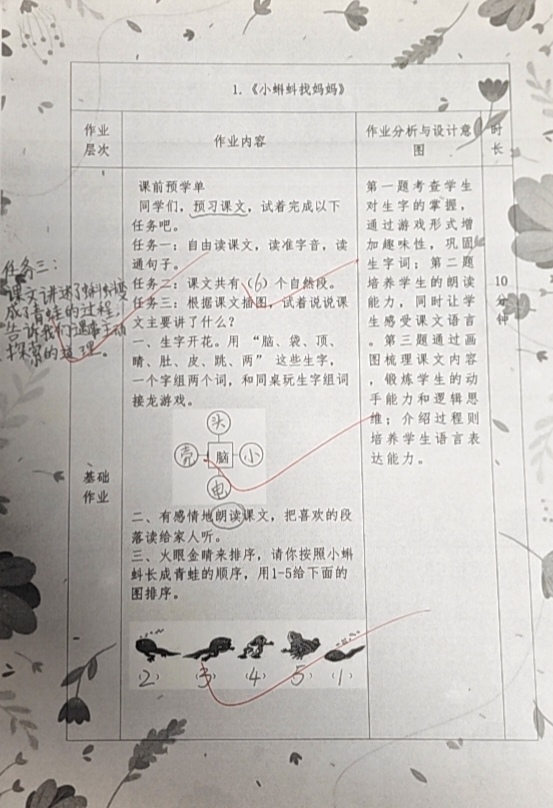 1.《小蝌蚪找妈妈》
作业
层次
作业内容
作业分析与设计意
图
时
长
基础
作业
课前预学单
同学们，预习课文，试着完成以下
任务吧。
任务一：自由读课文，读准字音，读
通句子。
任务二：课文共有（6）个自然段。
任务三：根据课文插图，试着说说课
文主要讲了什么？
一、生字开花。用 “脑、袋、顶、
晴、肚、皮、跳、两” 这些生字，
一个字组两个词，和同桌玩生字组词
接龙游戏。
头
壳 脑 小
电
二、有感情地朗读课文，把喜欢的段
落读给家人听。
三、火眼金睛来排序，请你按照小蝌
蚪长成青蛙的顺序，用1-5给下面的
图排序。
（2） （3） （4） 5） （1）
第一题考查学生
对生字的掌握，
通过游戏形式增
加趣味性，巩固
生字词；第二题
培养学生的朗读
能力，同时让学
生感受课文语言
。第三题通过画
图梳理课文内容
，锻炼学生的动
手能力和逻辑思
维；介绍过程则
培养学生语言表
达能力。
10
分
钟
任务三：
课文讲述了蝌蚪变
成了青蛙的过程，
告诉我们遇事主动
探索的道理。